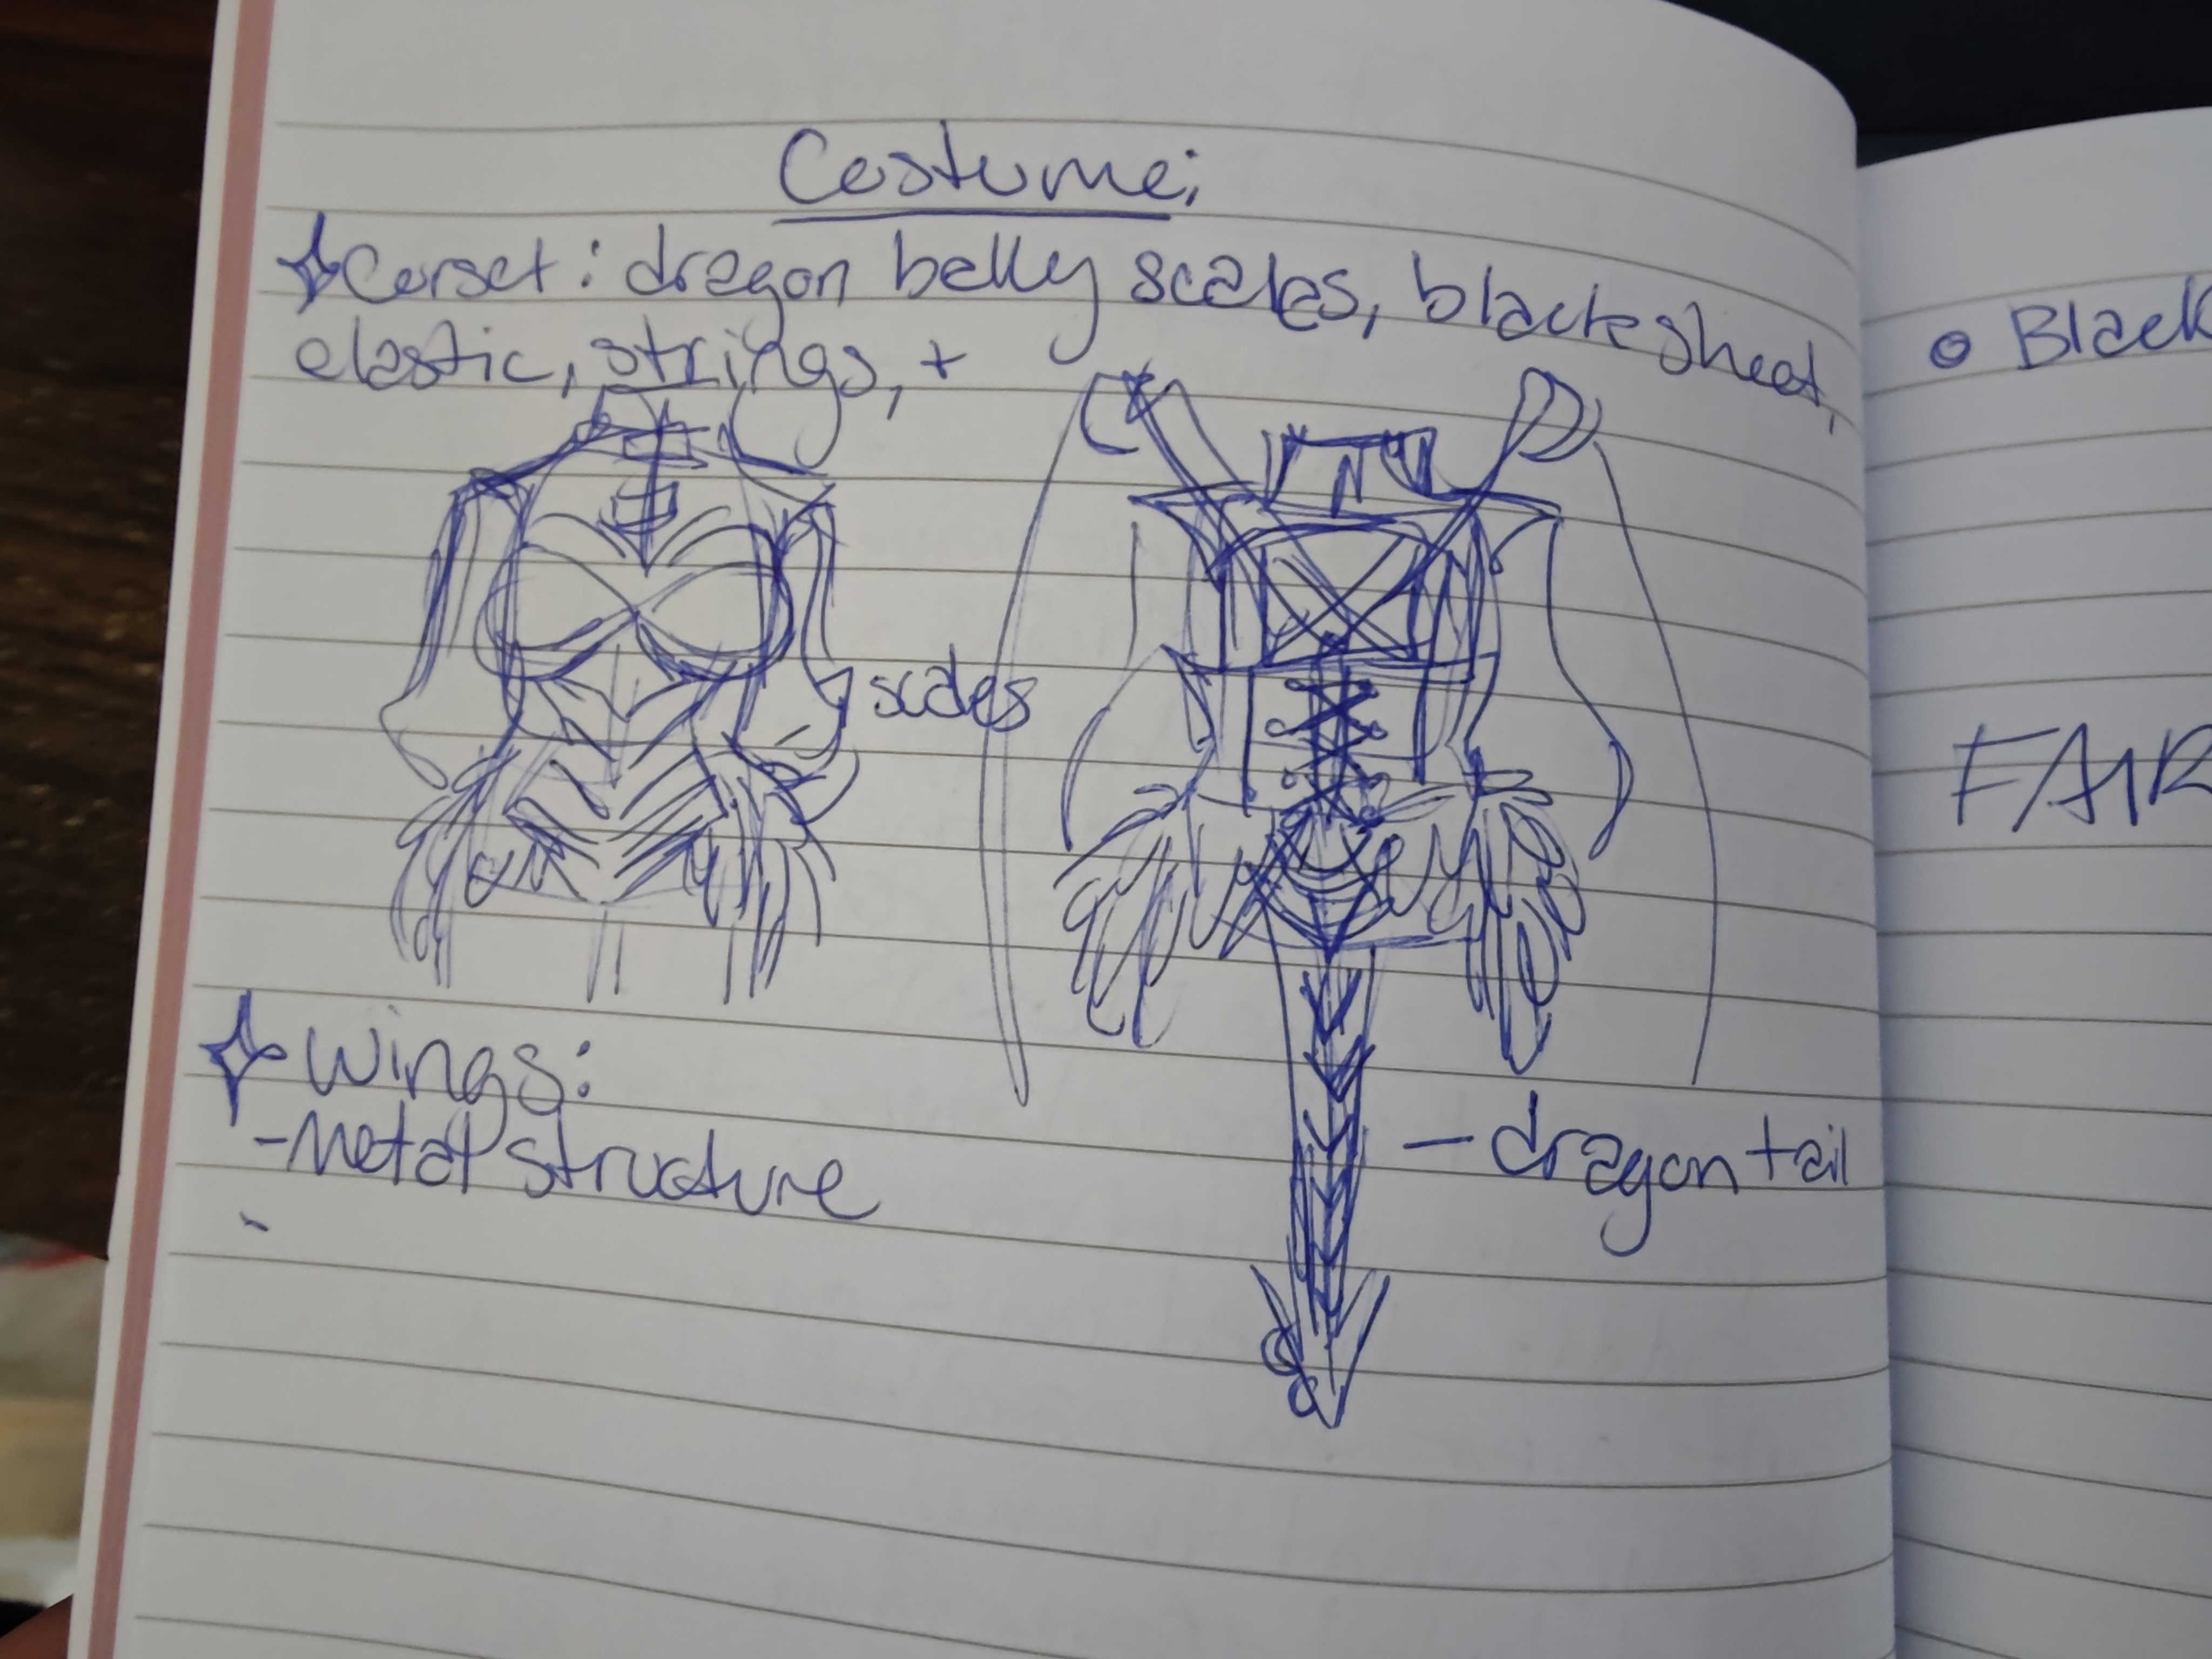 Costume;
Corset: dragon belly scales, black sheet,
elastic, strings, +
scales
Wings:
-Metal structure
- dragon tail
Black
FAIR